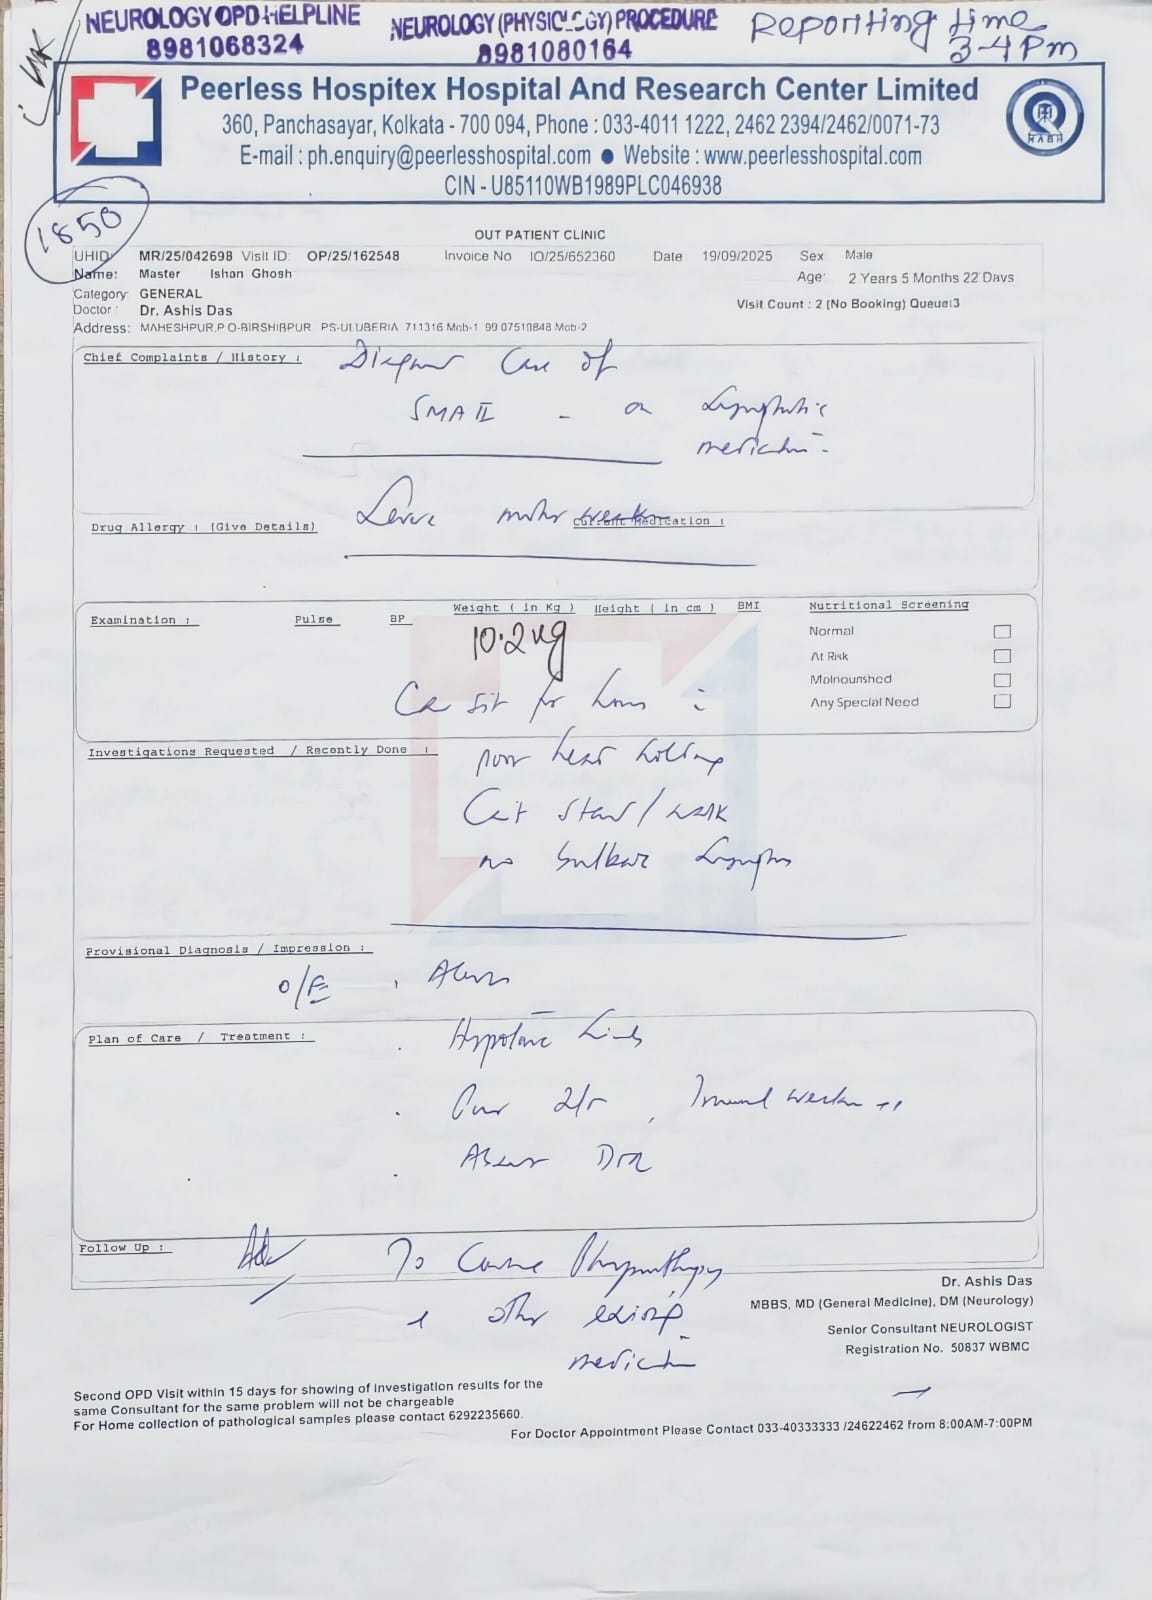 NEUROLOGY OPD HELPLINE
8981068324
NEUROLOGY (PHYSIOLOGY) PROCEDURE
8981080164
Reporting time
3-4 Pm
Peerless Hospitex Hospital And Research Center Limited
360, Panchasayar, Kolkata - 700 094, Phone : 033-4011 1222, 2462 2394/2462/0071-73
E-mail : ph.enquiry@peerlesshospital.com ● Website : www.peerlesshospital.com
CIN - U85110WB1989PLC046938
NABH
1850
OUT PATIENT CLINIC
UHID: MR/25/042698 Visit ID: OP/25/162548 Invoice No IO/25/652360 Date 19/09/2025 Sex Male
Name: Master Ishan Ghosh Age: 2 Years 5 Months 22 Days
Category: GENERAL
Doctor : Dr. Ashis Das Visit Count : 2 (No Booking) Queue:3
Address: MAHESHPUR,P O-BIRSHIBPUR PS-ULUBERIA 711316 Mob-1 9907510848 Mob-2
Chief Complaints / History :
Case of
SMA II - on
Drug Allergy : (Give Details) Current Medication :
motor weakn
Examination : Pulse BP Weight ( in Kg ) Height ( in cm ) BMI Nutritional Screening
10.2 kg
Normal
At Risk
Malnourished
Any Special Need
sit for
Investigations Requested / Recently Done :
poor head holding
stand / walk
no bulbar
Provisional Diagnosis / Impression :
O/E
Plan of Care / Treatment :
Hypotonic limbs
2/5
Absent DTR
Follow Up :
Adv
To Physiotherapy
other existing
Dr. Ashis Das
MBBS, MD (General Medicine), DM (Neurology)
Senior Consultant NEUROLOGIST
Registration No. 50837 WBMC
Second OPD Visit within 15 days for showing of investigation results for the
same Consultant for the same problem will not be chargeable
For Home collection of pathological samples please contact 6292235660.
For Doctor Appointment Please Contact 033-40333333 /24622462 from 8:00AM-7:00PM